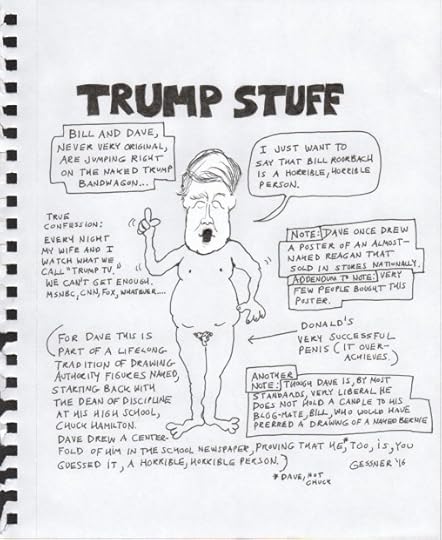 TRUMP STUFF
BILL AND DAVE,
NEVER VERY ORIGINAL,
ARE JUMPING RIGHT
ON THE NAKED TRUMP
BANDWAGON...
I JUST WANT TO
SAY THAT BILL ROORBACH
IS A HORRIBLE, HORRIBLE
PERSON.
TRUE
CONFESSION:
EVERY NIGHT
MY WIFE AND I
WATCH WHAT WE
CALL "TRUMP TV."
WE CAN'T GET ENOUGH.
MSNBC, CNN, FOX, WHATEVER....
NOTE: DAVE ONCE DREW
A POSTER OF AN ALMOST-
NAKED REAGAN THAT
SOLD IN STORES NATIONALLY.
ADDENDUM TO NOTE: VERY
FEW PEOPLE BOUGHT THIS
POSTER.
DONALD'S
VERY SUCCESSFUL
PENIS (IT OVER-
ACHIEVES.)
(FOR DAVE THIS IS
PART OF A LIFELONG
TRADITION OF DRAWING
AUTHORITY FIGURES NAKED,
STARTING BACK WITH
THE DEAN OF DISCIPLINE
AT HIS HIGH SCHOOL,
CHUCK HAMILTON.
DAVE DREW A CENTER-
FOLD OF HIM IN THE SCHOOL NEWSPAPER, PROVING THAT HE,* TOO, IS, YOU
GUESSED IT, A HORRIBLE, HORRIBLE PERSON.)
ANOTHER
NOTE: THOUGH DAVE IS, BY MOST
STANDARDS, VERY LIBERAL HE
DOES NOT HOLD A CANDLE TO HIS
BLOG-MATE, BILL, WHO WOULD HAVE
PRERRED A DRAWING OF A NAKED BERNIE
GESSNER '16
*DAVE, NOT
CHUCK